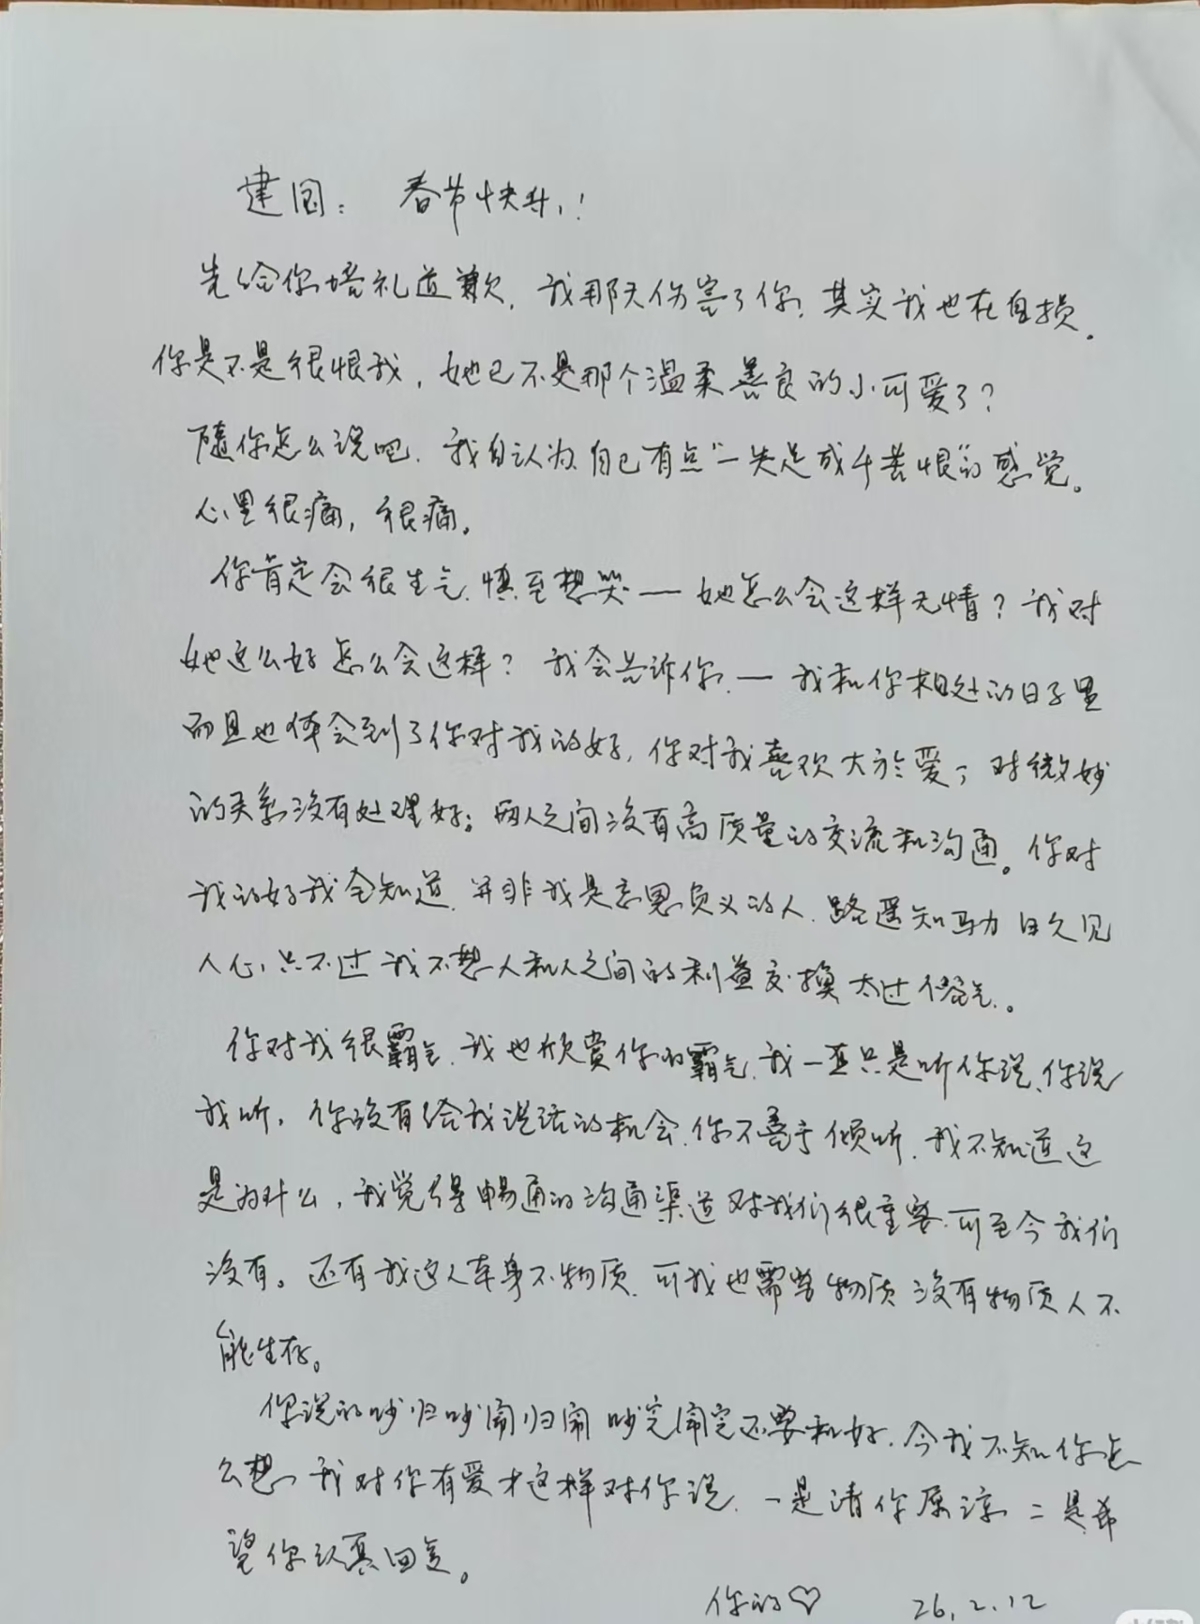 建国： 春节快乐！
先给你培礼道歉，我那天伤害了你，其实我也在自损。
你是不是很恨我，她已不是那个温柔善良的小可爱了？
随你怎么说吧，我自认为自己有点“一失足成千苦恨”的感觉。
心里很痛，很痛。
你肯定会很生气，慎至想哭—她怎么会这样无情？我对
她这么好怎么会这样？我会告诉你，—我和你相处的日子里
而且也体会到了你对我的好，你对我喜欢大於爱，对微妙
的关系没有处理好。两人之间没有高质量的交流和沟通。你对
我的好我全知道，并非我是忘恩负义的人，路遥知马力 日久见
人心，只不过我不想人和人之间的利益交换太过俗气。
你对我很霸气，我也欣赏你的霸气，我一直只是听你说，你说
我听，你没有给我说话的机会，你不善于倾听，我不知道这
是为什么，我觉得畅通的沟通渠道对我们很重要，可至今我们
没有。还有我这人本身不物质，可我也需要物质 没有物质人不
能生存。
你说的吵归吵闹归闹 吵完闹完还要和好，今我不知你怎
么想，我对你有爱才这样对你说，一是请你原谅 二是希
望你认真回复。
你的♡ 26.2.12